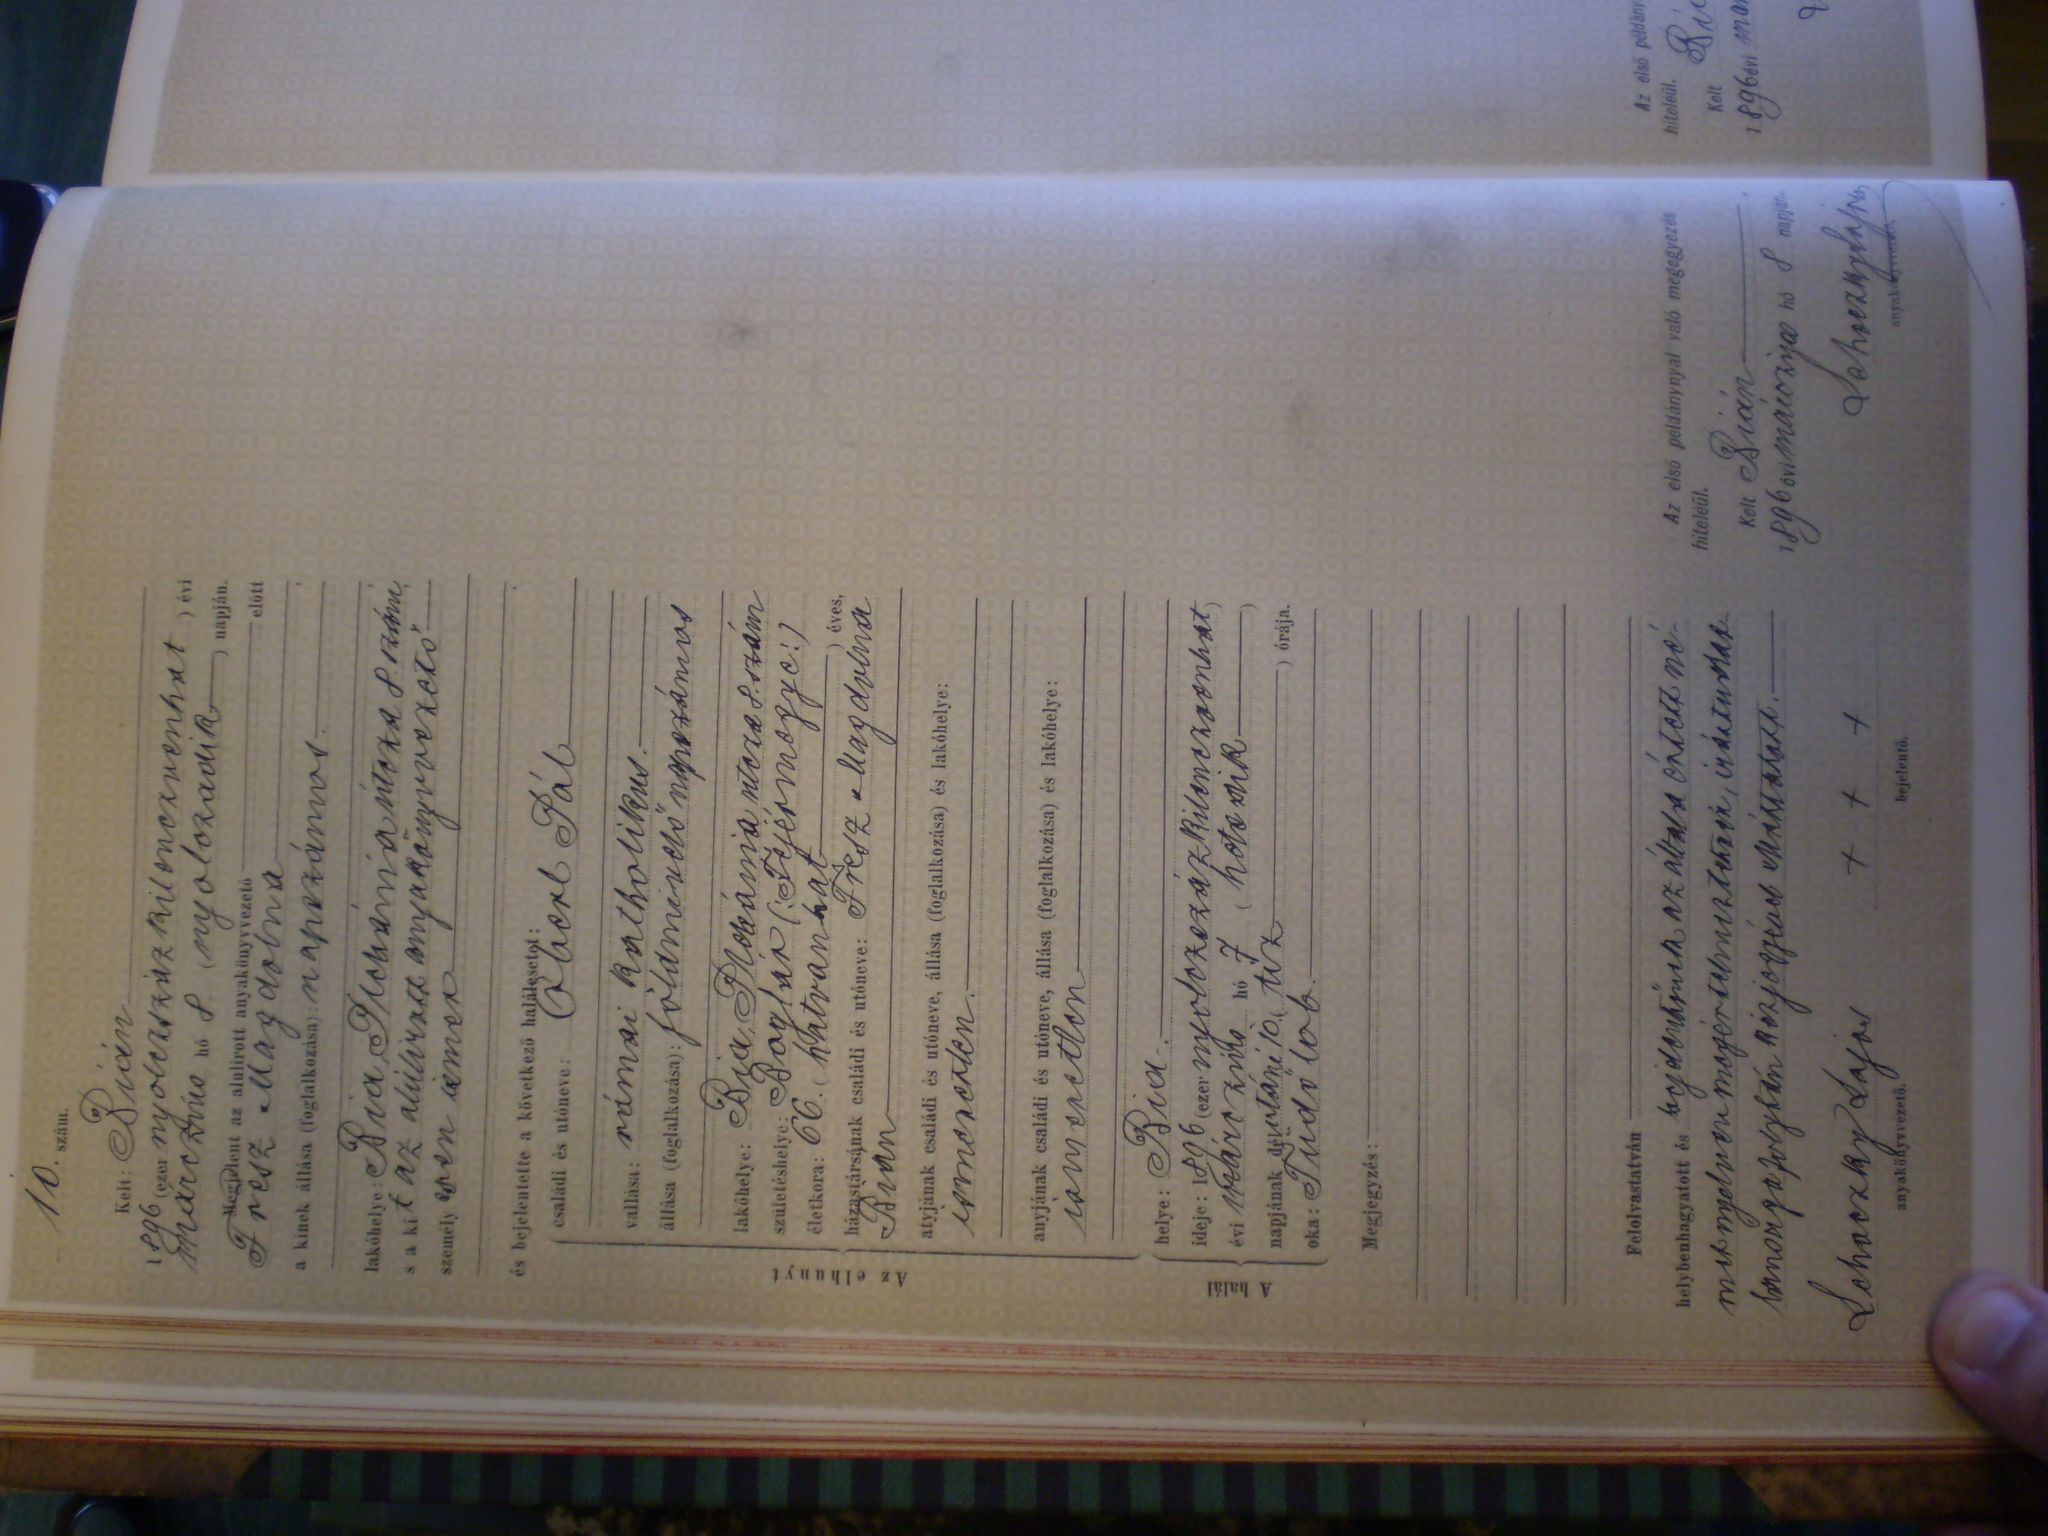 10. szám.
Kelt: Bián
1896 (ezer nyolczszáz kilenczvenhat) évi
márczius hó 8 (nyolczadik) napján.
Megjelent az alulirott anyakönyvvezető előtt
Fresz Magdolna
a kinek állása (foglalkozása): napszámos.
lakóhelye: Bia, Plebánia útcza 8. szám,
s a kit az alulirott anyakönyvvezető
személyesen ismer
és bejelentette a következő halálesetot:
Az elhunyt
családi és utóneve: Oberl Pál
vallása: római katholikus.
állása (foglalkozása): földmivelő napszámos
lakóhelye: Bia, Plebánia utcza 8. szám
születéshelye: Boglár (: Fejérmegye :)
életkora: 66. (hatvanhat) éves,
házastársának családi és utóneve: Fresz Magdolna
Bian
atyjának családi és utóneve, állása (foglalkozása) és lakóhelye:
ismeretlen.
anyjának családi és utóneve, állása (foglalkozása) és lakóhelye:
ismeretlen
A halál
helye: Bia.
ideje: 1896 (ezer nyolczszázkilenczvenhat)
évi márczius hó 7 (hetedik)
napjának délutáni 10. (tiz) órája.
oka: Tüdőlob.
Megjegyzés:
Felolvastatván
helybenhagyatott és bejelentőnek az általa értett né-
met nyelven megértelmeztetett, irástudat-
lansága folytán kézjegyével elláttatott.
Schoczky Lajos
anyakönyvvezető.
+ + + + +
bejelentő.
Az első példánynyal való megegyezés
hiteléül.
Kelt Bián
1896 évi márczius hó 8 napján.
Schoczky Lajos
anyakönyvvezető.
Az első példány
hiteléül.
Kelt
1896 évi